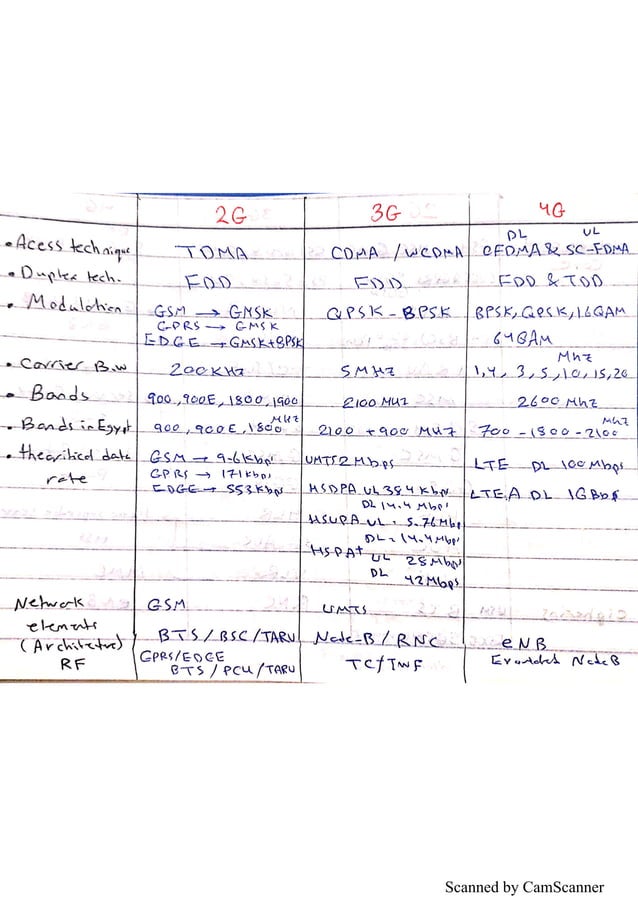 2G 3G 4G
DL UL
• Acess technique TDMA CDMA / WCDMA OFDMA & SC-FDMA
• Duplex tech. FDD FDD FDD & TDD
• Modulation GSM → GMSK QPSK - BPSK BPSK, QPSK, 16QAM
GPRS → GMSK
EDGE → GMSK + 8PSK 64QAM
Mhz
• Carrier B.w 200KHz 5MHz 1,4, 3, 5, 10, 15, 20
• Bands 900, 900E, 1800, 1900 2100 MHz 2600 Mhz
MHz Mhz
• Bands in Egypt 900, 900E, 1800 2100 + 900 MHz 700 - 1800 - 2100
• theoritical data GSM → 9.6Kbps UMTS 2Mbps LTE DL 100Mbps
rate GPRS → 171Kbps
EDGE → 553Kbps HSDPA UL 384Kbps LTE.A DL 1GBbs
DL 14.4 Mbps
HSUPA UL. 5.76Mbps
DL. 14.4Mbps
HSPA+ UL 28Mbps
DL 42Mbps
Network GSM UMTS
elements BTS / BSC / TARU Node-B / RNC eNB
(Architecture) GPRS/EDGE Node B
RF BTS / PCU / TARU TC / IWF
Scanned by CamScanner